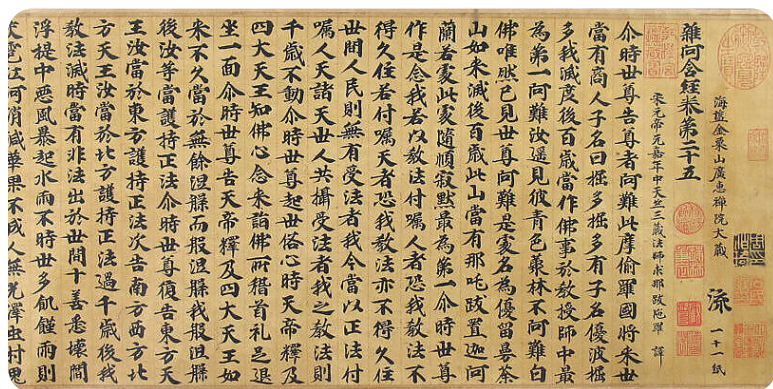 海鹽金粟山廣惠禪院大藏 流 一十一紙
雜阿含經卷第二十五
宋元帝元嘉年中天竺三藏法師求那跋陀羅 譯
尒時世尊告尊者阿難此摩偷羅國將来世
當有商人子名曰掘多掘多有子名優波掘
多我滅度後百歲當作佛事於教授師中最
為第一阿難汝遥見彼青色藂林不阿難白
佛唯然已見世尊阿難是處名為優留曼荼
山如来滅後百歲此山當有那吒跋置迦阿
蘭若處此處隨順寂默最為第一尒時世尊
作是念我若以教法付囑人者恐我教法不
得久住若付囑天者恐我教法亦不得久住
世間人民則無有受法者我今當以正法付
囑人天諸天世人共攝受法者我之教法則
千歲不動尒時世尊起世俗心時天帝釋及
四大天王知佛心念来詣佛所稽首礼足退
坐一面尒時世尊告天帝釋及四大天王如
来不久當於無餘涅槃而般涅槃我般涅槃
後汝等當護持正法尒時世尊復告東方天
王汝當於東方護持正法次告南方西方北
方天王汝當於北方護持正法過千歲後我
教法滅時當有非法出於世間十善悉壞閻
浮提中惡風暴起水雨不時世多飢饉雨則
雹江河消滅華果不成人無光澤虫村鬼